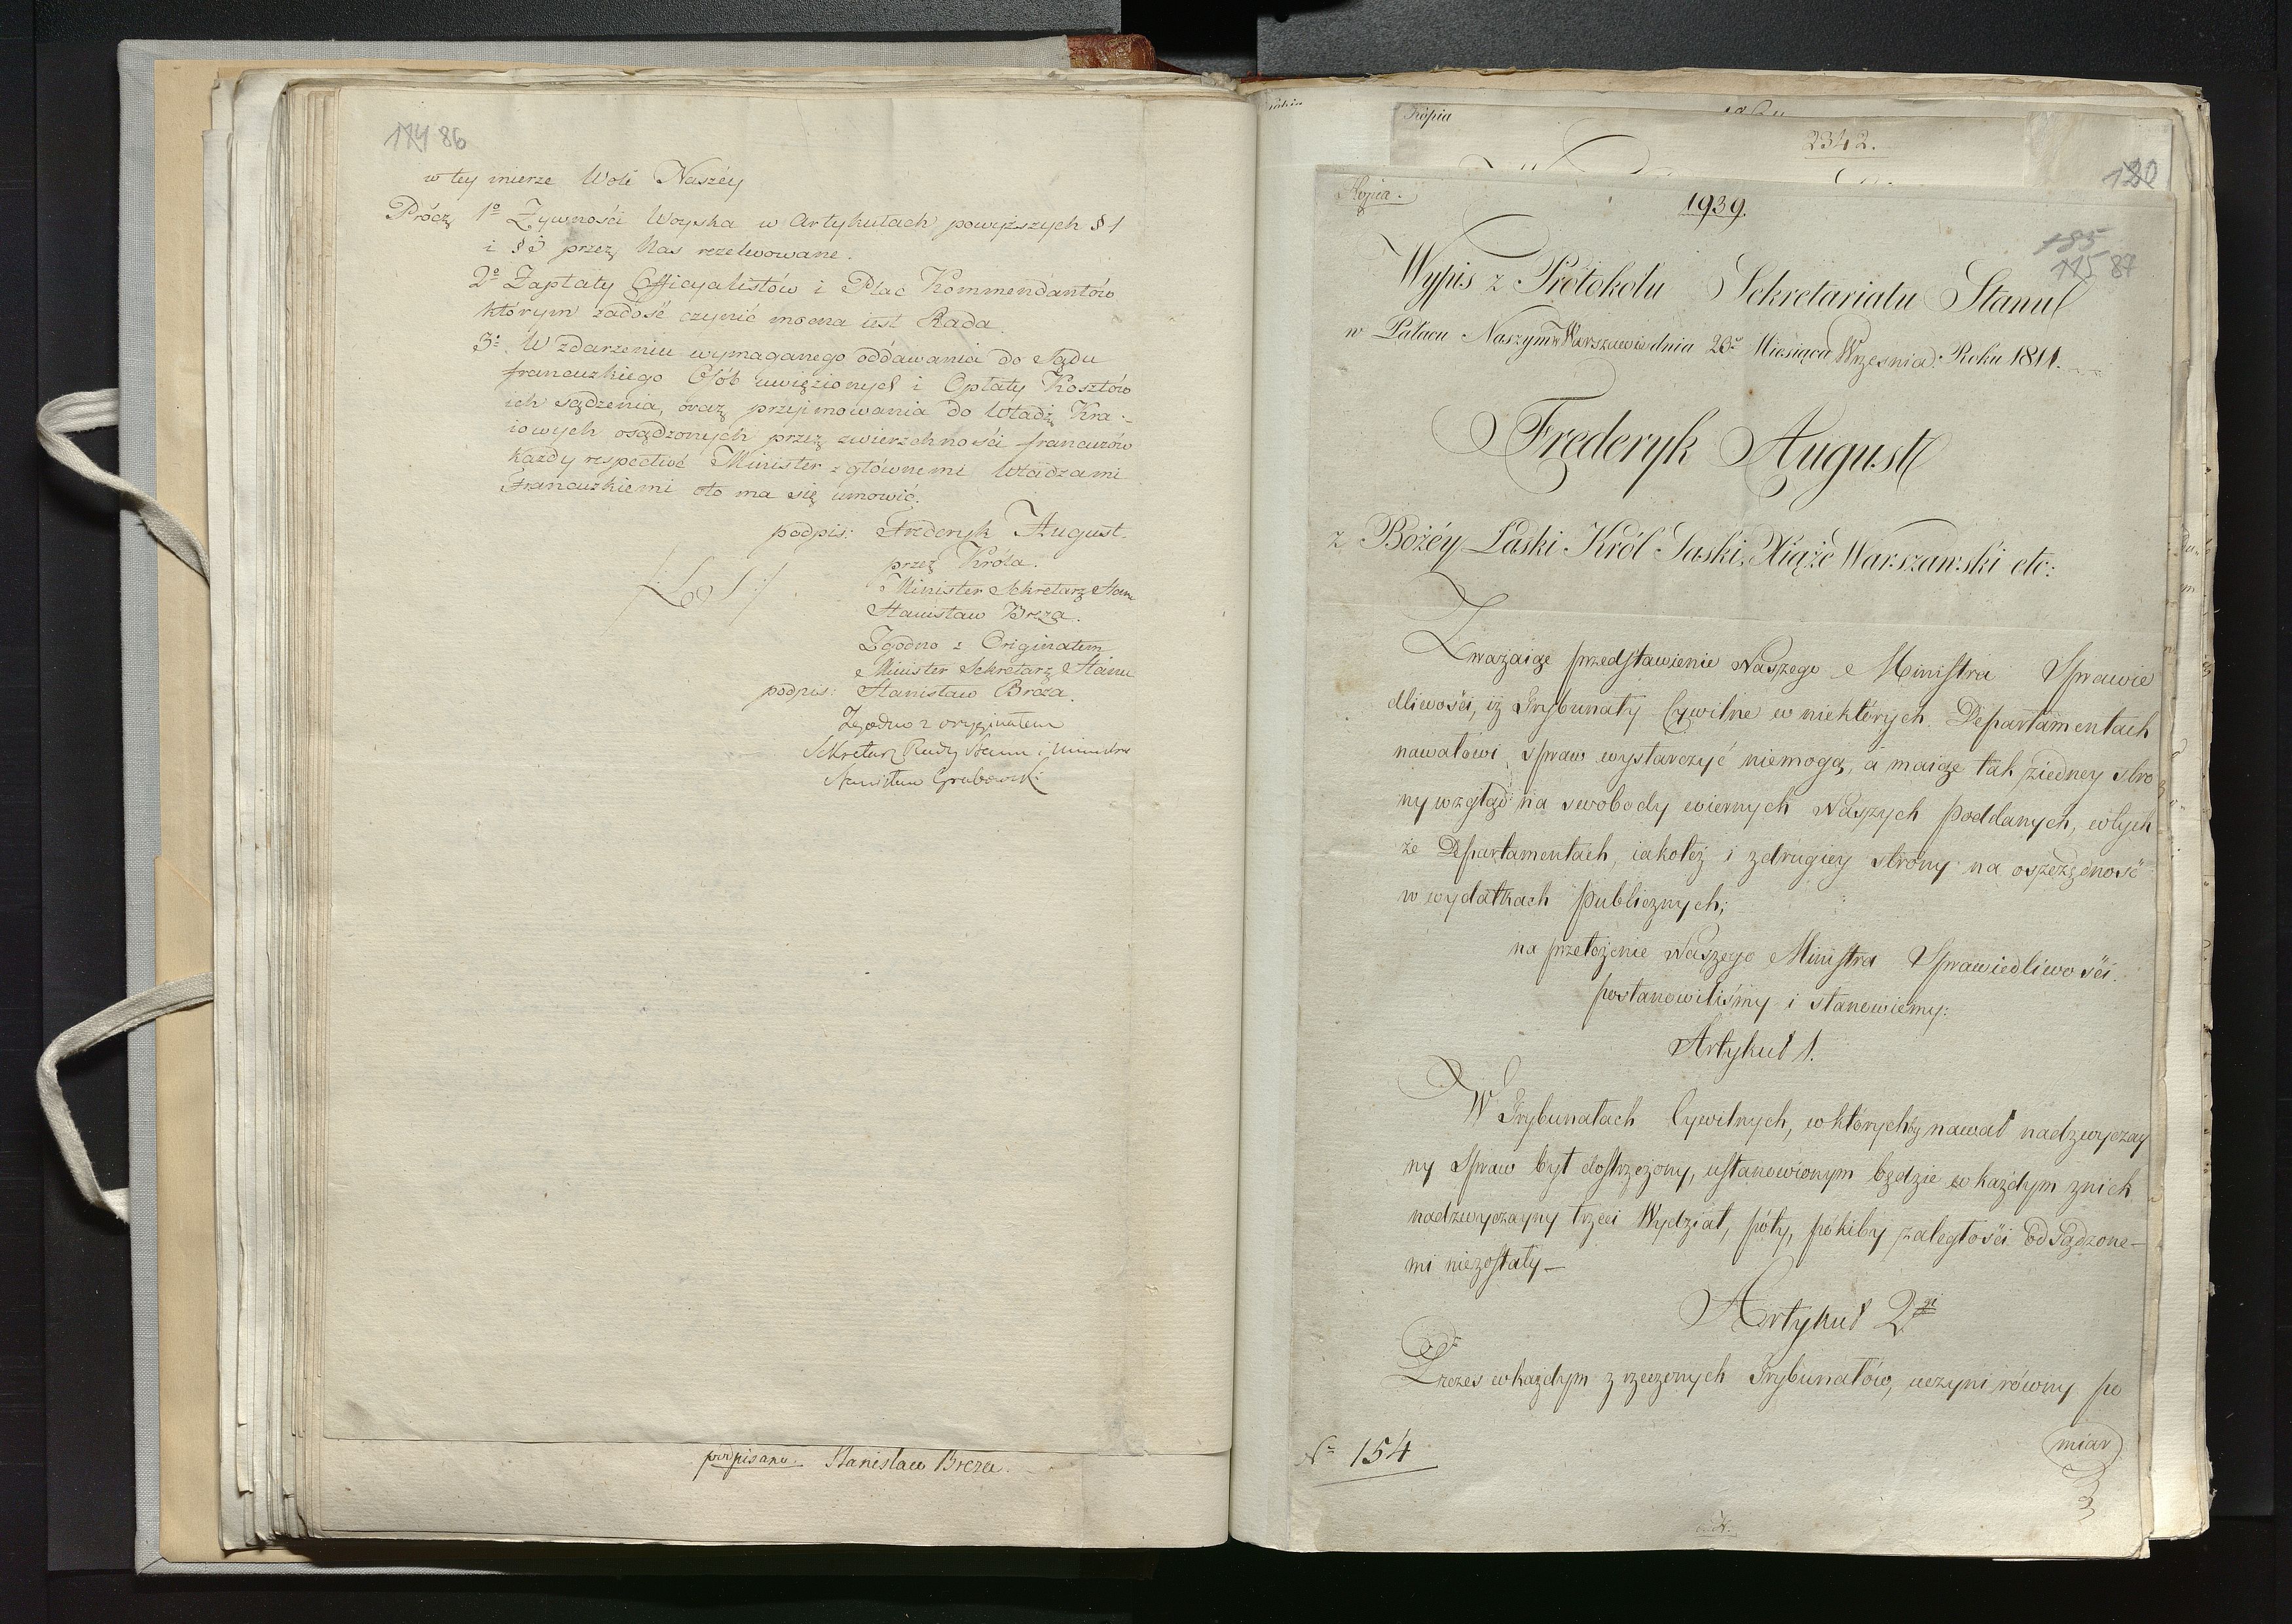 174 86
w tey mierze Woli Naszéy
Prócz 1º Żywności Woyska w Artykułach powyższych § 1
i § 3 przez Nas rezelwowane.
2º Zapłaty Officyalistów i Płac Kommendantów
którym zadość czynić mocna iest Rada.
3º. W zdarzeniu wymaganego oddawania do Sądu
francuzkiego Osób uwięzionych i Opłaty Kosztów
ich sądzenia, oraz przyimowania do Władz Kra-
iowych osądzonych przez zwierzchności francuzów
każdy respective Minister z głównemi Władzami
Francuzkiemi oto ma się umowić.
podpis: Frederyk August.
przez Króla.
/:L S:/
Minister Sekretarz Stanu
Stanisław Breza.
Zgodno z Originałem
Minister Sekretarz Stanu
podpis: Stanisław Breza.
Zgodno z oryginałem
Sekretarz Rady Stanu i Ministrów
Stanisław Grabowski
podpisano. Stanisław Breza.
Kopia
2342.
180
Kopia.
1939.
185
115 87
Wypis z Protokołu Sekretariatu Stanu
w Pałacu Naszym w Warszawie dnia 20º Miesiąca Września Roku 1811.
Frederyk August
z Bożéy Łaski Król Saski, Xiąże Warszawski etc:
Zważaiąc przedstawienie Naszego Ministra Sprawie
dliwości, iż Trybunały Cywilne w niektórych Departamentach
nawałowi spraw wystarczyć niemogą, a maiąc tak ziedney stro
ny wzgląd na swobody wiernych Naszych poddanych, wtych
że Departamentach, iakoteż i zdrugiey strony na oszczędność
w wydatkach publicznych;
na przełożenie Naszego Ministra Sprawiedliwości.
postanowiliśmy i stanowiemy:
Artykuł 1.
W Trybunałach Cywilnych, w którychby nawał nadzwyczay
ny Spraw był dostrzeżony, ustanowionym będzie w każdym znich
nadzwyczayny trzeci Wydział, póty, pókiby zaległości Odsądzone-
mi niezostały—
Artykuł 2gi
Prezes w każdym z rzeczonych Trybunałów, uczyni równy po
miar
Nº 154